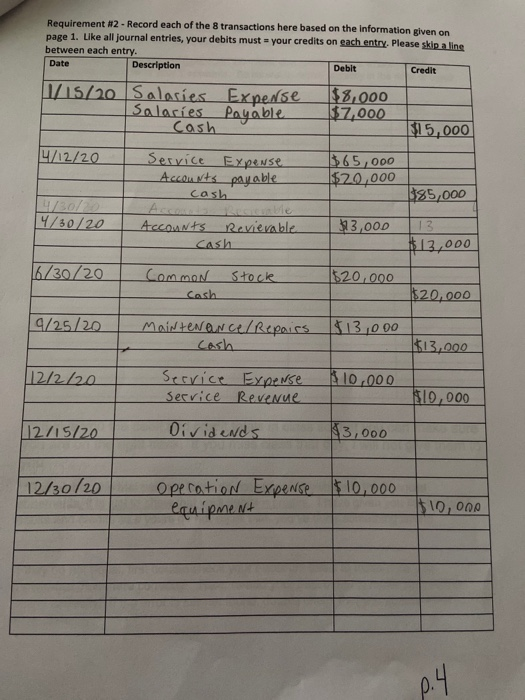 Requirement #2 - Record each of the 8 transactions here based on the information given on
page 1. Like all journal entries, your debits must = your credits on each entry. Please skip a line
between each entry.
Date Description Debit Credit
1/15/20 Salaries Expense $8,000
Salaries Payable $7,000
Cash $15,000
4/12/20 Service Expense $65,000
Accounts payable $20,000
cash $85,000
4/30/20
4/30/20 Accounts Revievable $13,000 13
Cash $13,000
6/30/20 Common Stock $20,000
Cash $20,000
9/25/20 Maintenance/Repairs $13,000
Cash $13,000
12/2/20 Service Expense $10,000
Service Revenue $10,000
12/15/20 Dividends $3,000
12/30/20 Operation Expense $10,000
equipment $10,000
p.4